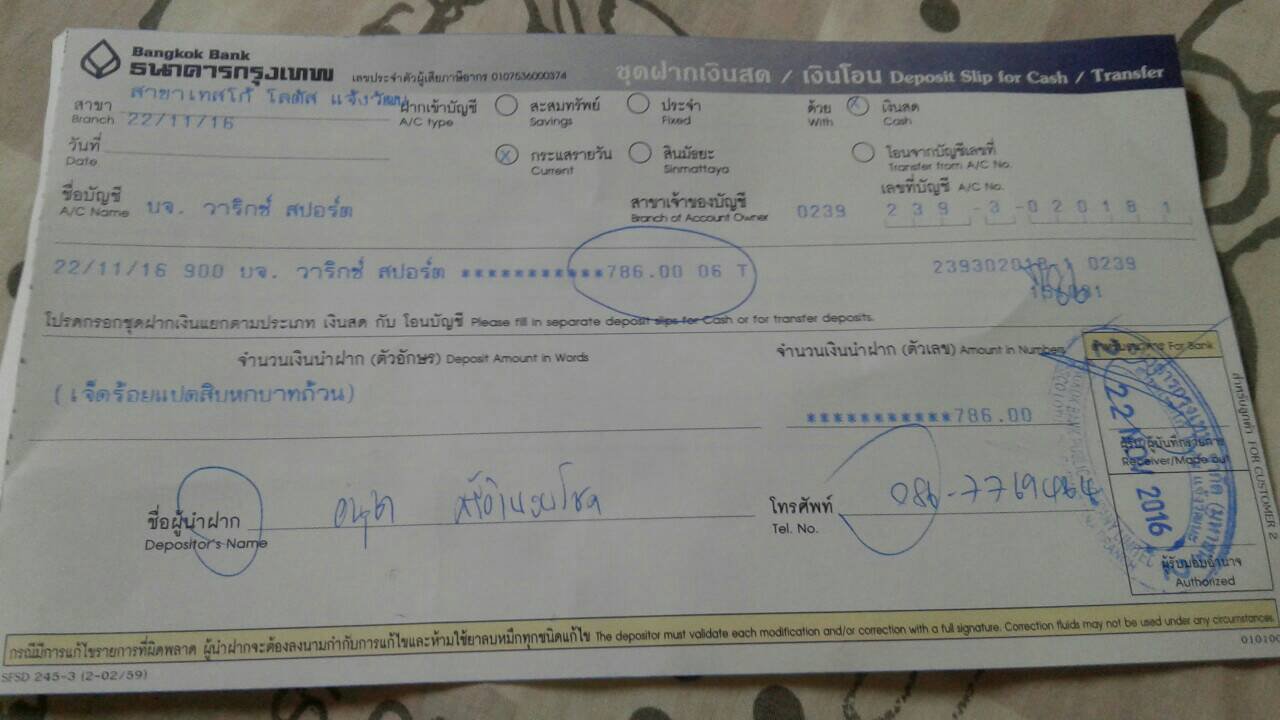 Bangkok Bank
ธนาคารกรุงเทพ เลขประจำตัวผู้เสียภาษีอากร 0107536000374 ชุดฝากเงินสด / เงินโอน Deposit Slip for Cash / Transfer
สาขา Branch สาขาเทสโก้ โลตัส แจ้งวัฒนะ ฝากเข้าบัญชี A/C type สะสมทรัพย์ Savings ประจำ Fixed ด้วย With X เงินสด Cash
22/11/16
วันที่ Date X กระแสรายวัน Current สินมัธยะ Sinmattaya โอนจากบัญชีเลขที่ Transfer from A/C No.
ชื่อบัญชี A/C Name บจ. วาริกซ์ สปอร์ต สาขาเจ้าของบัญชี Branch of Account Owner 0239 เลขที่บัญชี A/C No. 239-3-020181
22/11/16 900 บจ. วาริกซ์ สปอร์ต ***********786.00 06 T 0239
โปรดกรอกชุดฝากเงินแยกตามประเภท เงินสด กับ โอนบัญชี Please fill in separate deposit slips for Cash or for transfer deposits.
จำนวนเงินนำฝาก (ตัวอักษร) Deposit Amount in Words จำนวนเงินนำฝาก (ตัวเลข) Amount in Numbers For Bank
(เจ็ดร้อยแปดสิบหกบาทถ้วน) ***********786.00
22 NOV 2016
ผู้รับ/ผู้บันทึกรายการ
Receiver/Made by
สำหรับลูกค้า FOR CUSTOMER 2
ชื่อผู้นำฝาก Depositor's Name โทรศัพท์ Tel. No. 086-7769464
ผู้รับมอบอำนาจ
Authorized
กรณีมีการแก้ไขรายการที่ผิดพลาด ผู้นำฝากจะต้องลงนามกำกับการแก้ไขและห้ามใช้ยาลบหมึกทุกชนิดแก้ไข The depositor must validate each modification and/or correction with a full signature. Correction fluids may not be used under any circumstances.
SFSD 245-3 (2-02/59)